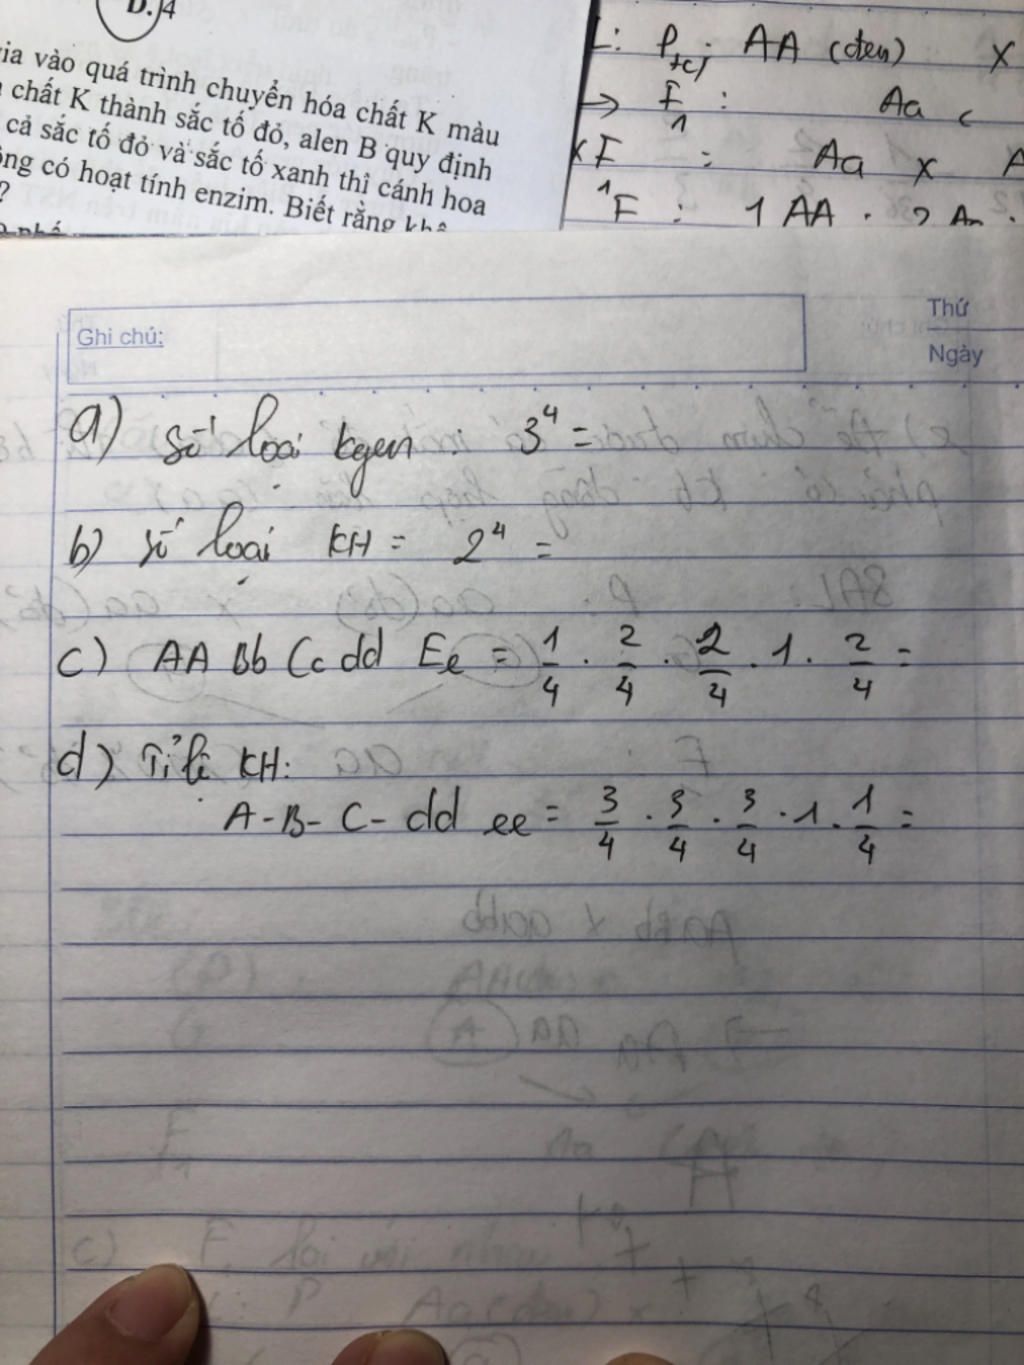 D. 4
gia vào quá trình chuyển hóa chất K màu
chất K thành sắc tố đỏ, alen B quy định
cả sắc tố đỏ và sắc tố xanh thì cánh hoa
ông có hoạt tính enzim. Biết rằng khô
?
L: Pt/c: AA (đen) X
→ F1 : Aa (
F1 x F1 : Aa x A
F : 1 AA : 2 Aa :
Ghi chú:
Thứ
Ngày
a) số loại kgen : 3⁴ =
b) số loại KH = 2⁴ =
c) AA Bb Cc dd Ee = 1/4 . 2/4 . 2/4 . 1 . 2/4 =
d) Tỉ lệ KH:
A-B- C- dd ee = 3/4 . 3/4 . 3/4 . 1 . 1/4 =